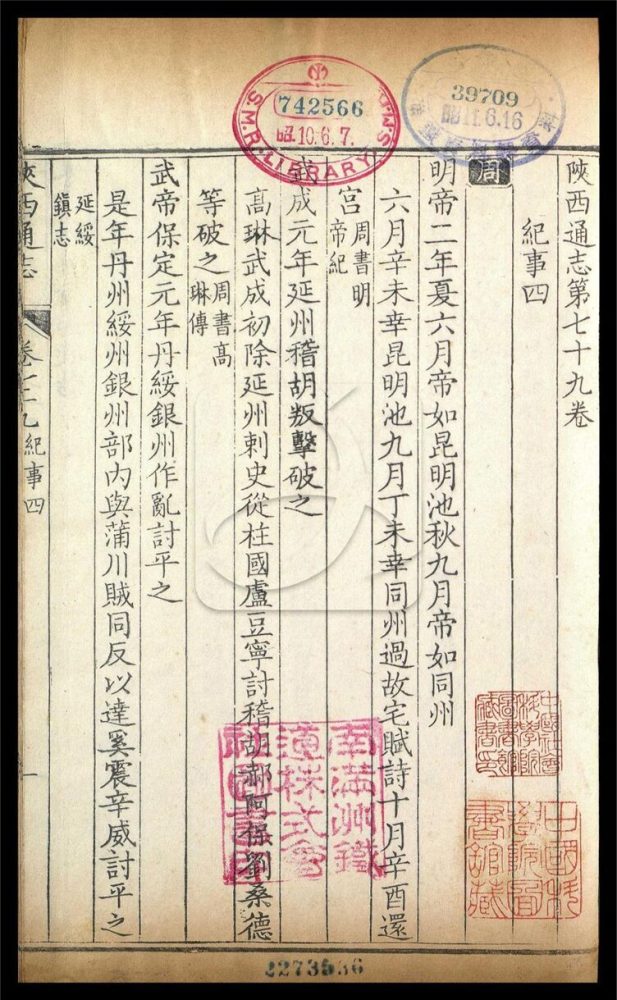 陝西通志第七十九卷
紀事四
周
明帝二年夏六月帝如昆明池秋九月帝如同州
六月辛未幸昆明池九月丁未幸同州過故宅賦詩十月辛酉還
宮周書明帝紀
武成元年延州稽胡叛擊破之
高琳武成初除延州刺史從柱國盧豆寧討稽胡郝阿保劉桑德
等破之周書高琳傳
武帝保定元年丹綏銀州作亂討平之
是年丹州綏州銀州部內與蒲川賊同反以達奚震辛威討平之
延綏鎮志
陝西通志
卷七十九紀事四
一
S.M.R. LIBRARY
742566
昭10.6.7.
39709
昭11.6.16
南滿洲鐵
道株式會
社圖書印
中國社會
科學院
圖書館
藏書印
中國科
學院圖
書館藏
2273536